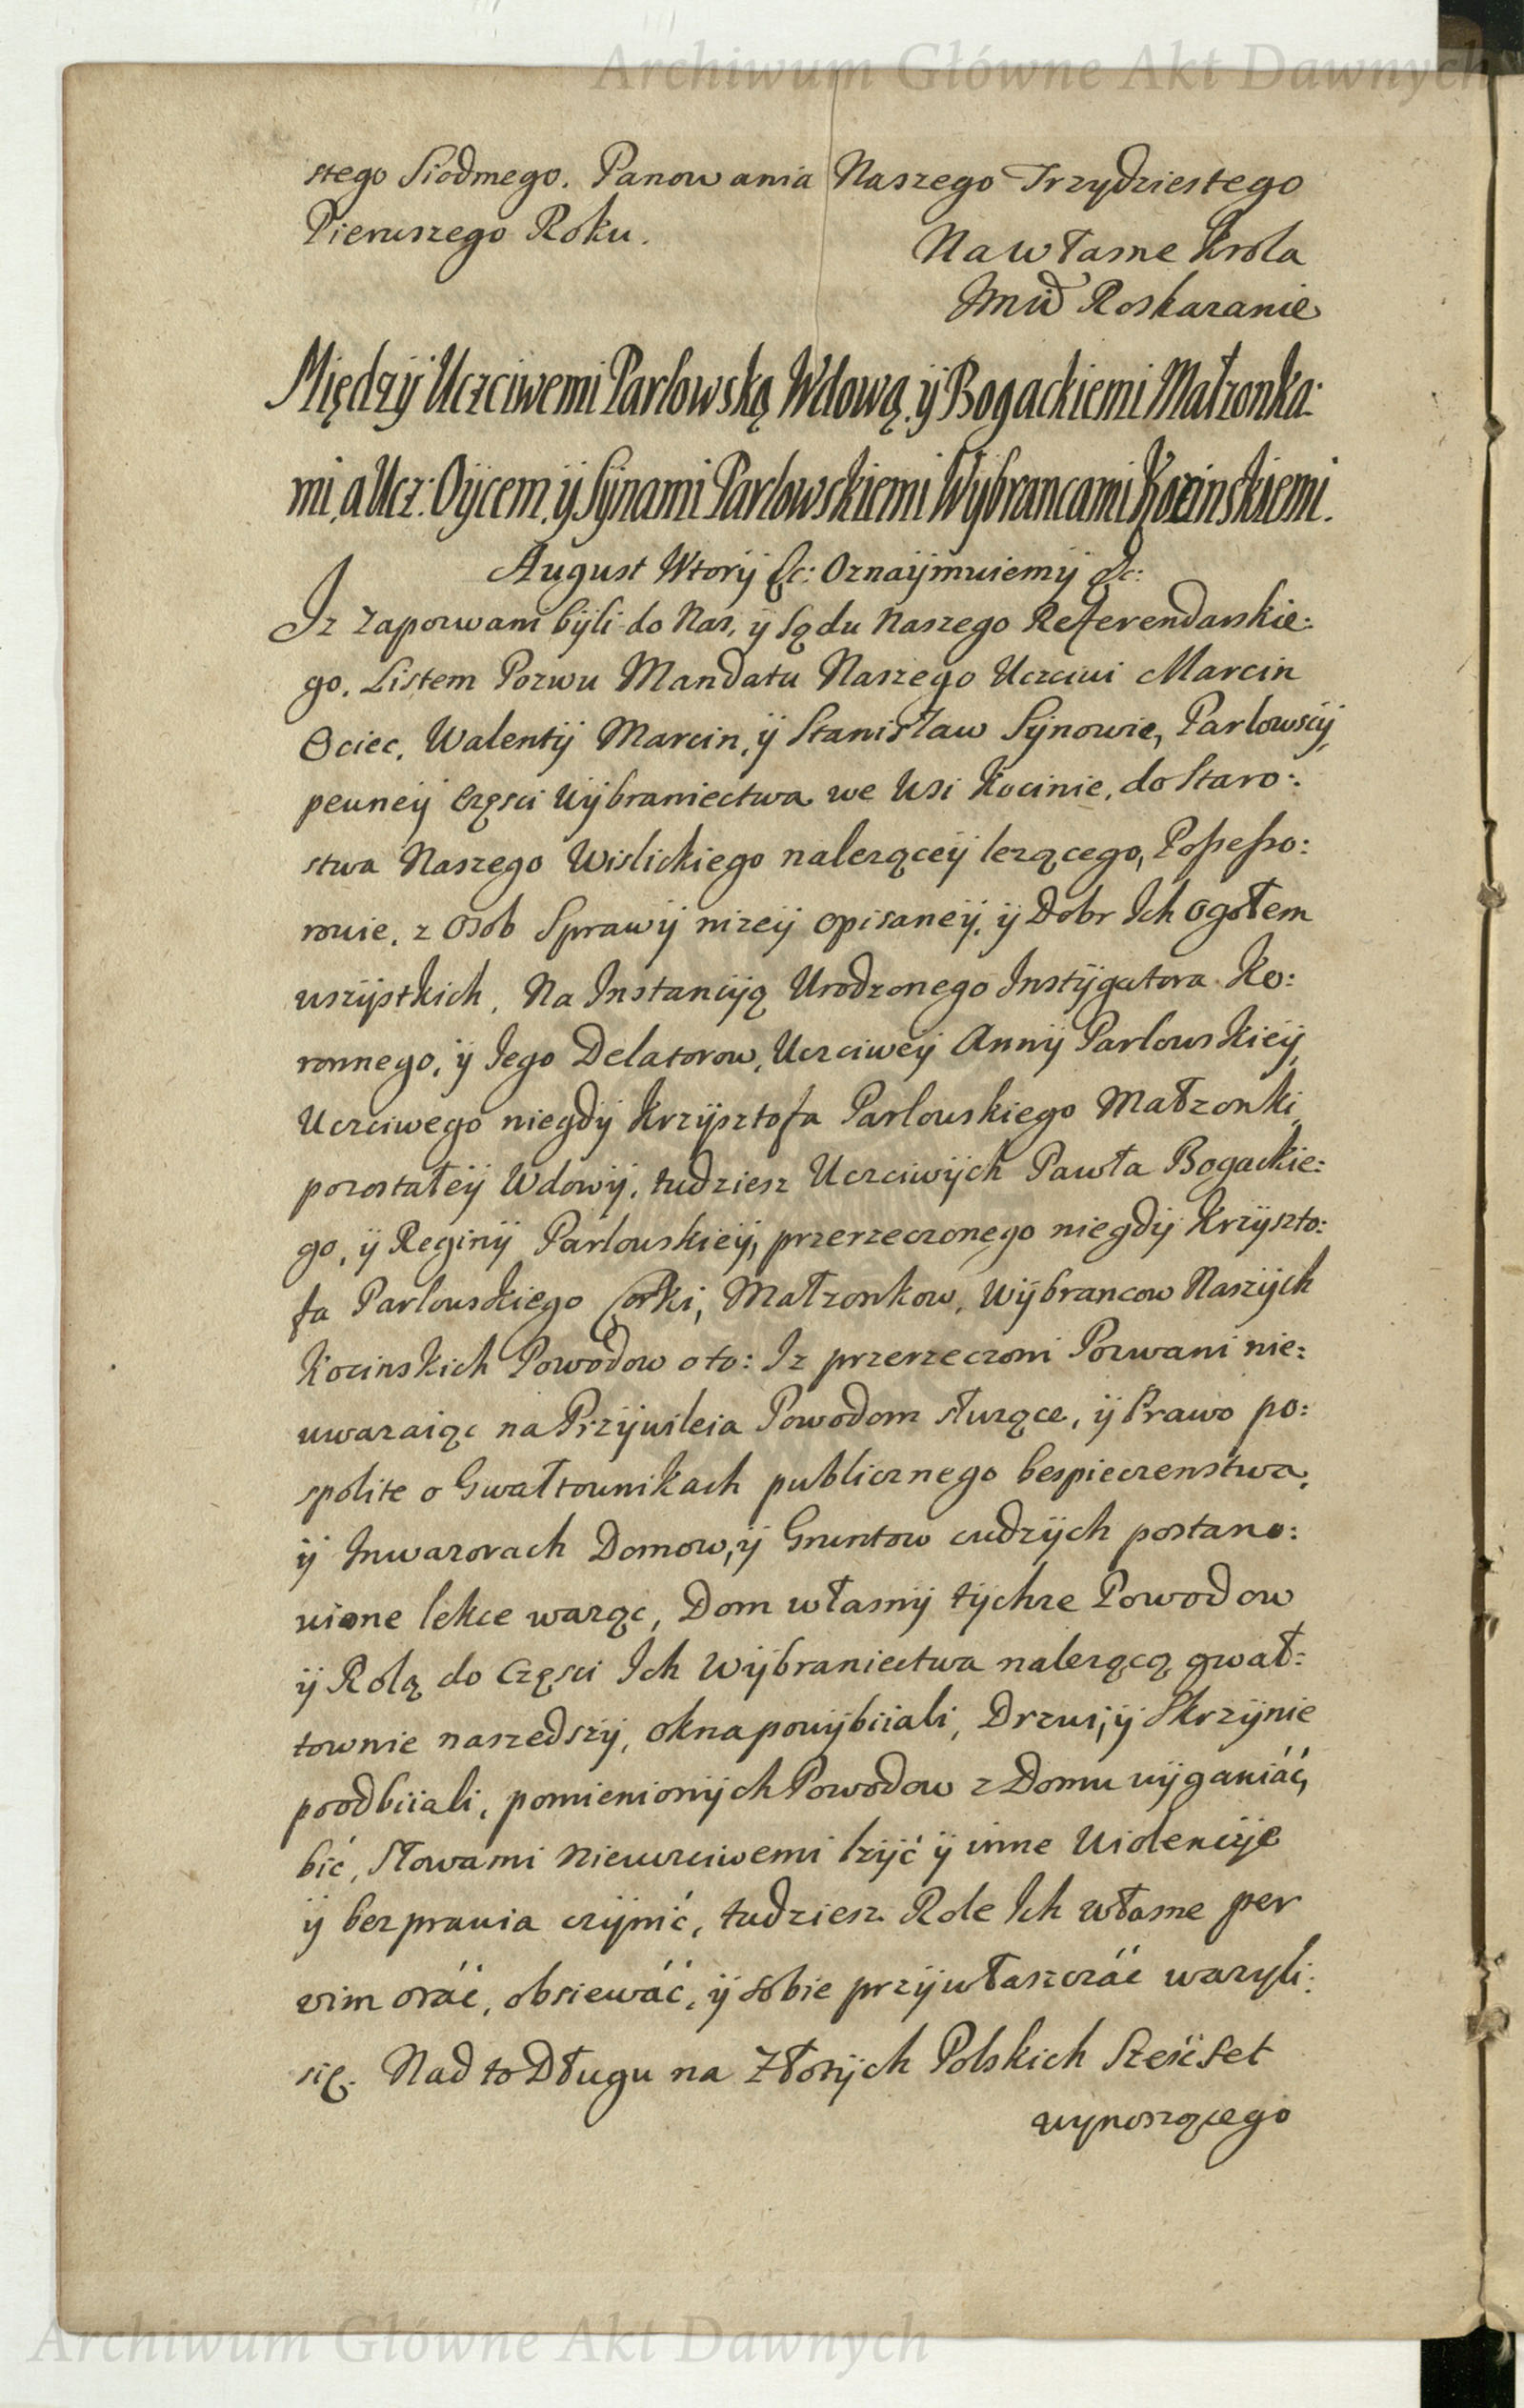 Archiwum Główne Akt Dawnych
stego Siodmego. Panowania Naszego Trzydziestego
Pierwszego Roku.
Na własne Krola
Jmći Roskazanie
Między Uczciwemi Parlowską Wdową, y Bogackiemi Małzonka:
mi, a Ucz: Oycem, y Synami Parlowskiemi Wybrancami Kocinskiemi.
August Wtory &c: Oznaymuiemy &c:
Iz Zapozwani byli do Nas, y Sądu Naszego Referendarskie:
go, Listem Pozwu Mandatu Naszego Uczciwi Marcin
Ociec, Walenty Marcin, y Stanisław Synowie, Parlowscy,
pewney Częsci Wybraniectwa we Wsi Kocinie, do Staro:
stwa Naszego Wislickiego nalezącey lezącego, Possesso:
rowie, z Osob Sprawy nizey opisaney, y Dobr Ich ogołem
wszystkich, Na Instancyą Urodzonego Instygatora Ko:
ronnego, y Iego Delatorow, Uczciwey Anny Parlowskiey,
Uczciwego niegdy Krzysztofa Parlowskiego Małzonki,
pozostałey Wdowy, tudziesz Uczciwych Pawła Bogackie:
go, y Reginy Parlowskiey, przerzeczonego niegdy Krzyszto:
fa Parlowskiego Corki, Małzonkow, Wybrancow Naszych
Kocinskich Powodow o to: Iz przerzeczoni Pozwani nie:
uwazaiąc na Przywileia Powodom słuzące, y Prawo po:
spolite o Gwałtownikach publicznego bespieczenstwa,
y Inwazorach Domow, y Gruntow cudzych postano:
wione lekce waząc, Dom własny tychze Powodow
y Rolą do Częsci Ich Wybraniectwa nalezącą gwał:
townie naszedszy, okna powybiiali, Drzwi, y Skrzynie
poodbiiali, pomienionych Powodow z Domu wyganiáć,
bić, Słowami nieuczciwemi lzyć y inne Wiolencye
y bezprawia czynić, tudziesz Role Ich własne per
vim oráć, obsiewáć, y sobie przywłaszczáć wazyli:
się. Nad to Długu na Złotych Polskich Sześćset
wynoszącego
Archiwum Główne Akt Dawnych